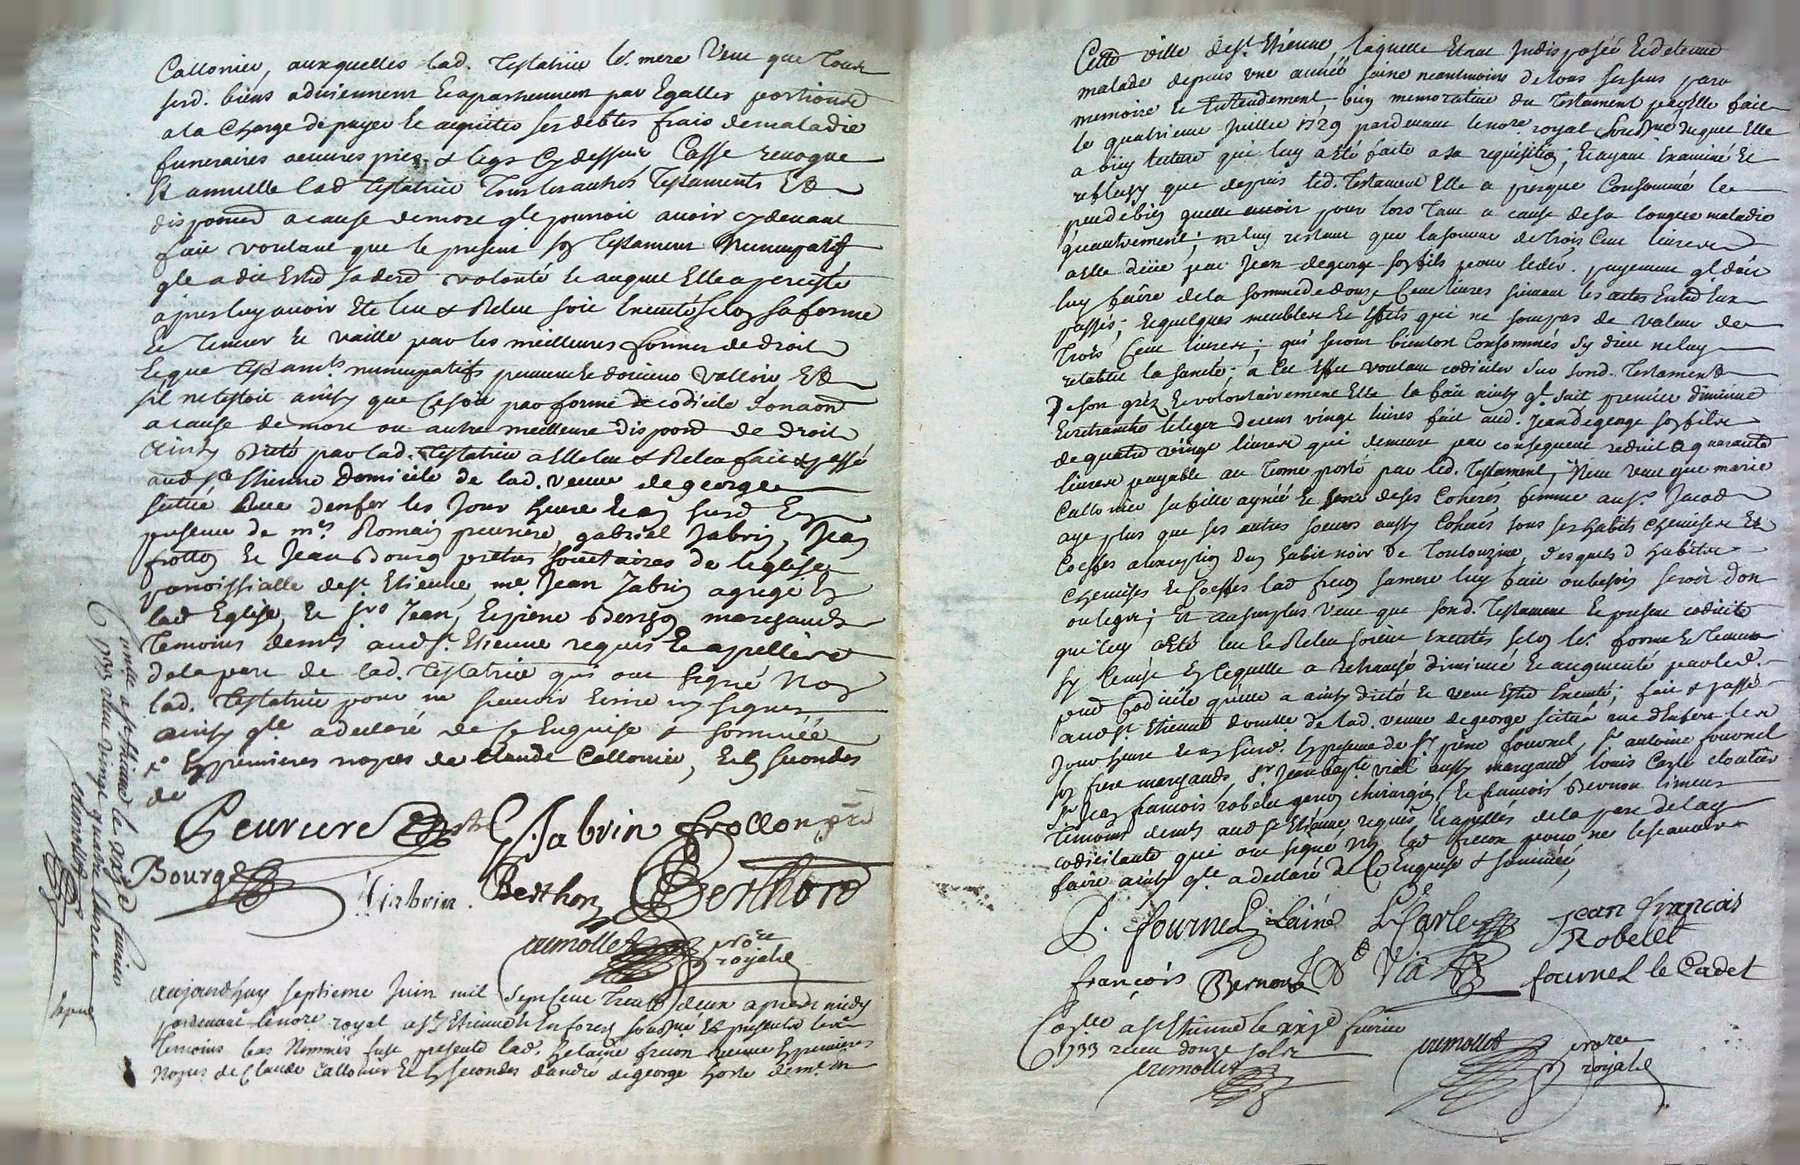 Callonier, auxquelles lad. Testatrice lé. mere Veut que Tous
sesd. biens adviennent & apartiennent par Egalles portions
a la Charge de payer & acquitter ses debtes frais de maladie
funeraires œuvres pies & legs Cy dessus Casse revoque
Et annulle lad Testatrice Tous les autres Testaments &
a cause de mort qle pourroit avoir cy devant
fait voulant que le present soy Testament Nuncupatif
qle a dit Estre sa dere volonté & auquel Elle a percisté
apres luy avoir Eté leu & Releu soit Executé seloy sa forme
Et Teneur & vaille par les meilleures formes de droit
que Testamts nuncupatifs peuvent & doivent valloir, Et
s'il ne estoit ainsy que Ce soit par forme de codicile donaon
a cause de mort ou autre meilleure de droit
Ainsy Dicté par lad. Testatrice a Elle leu & Releu fait & passé
aud St Etienne Domicile de lad. veuve degeorge
scitué Rue denfer les Jour heure & ay susd Ey
presence de mrs Romaiy peuriere, gabriel Jabriy, Jeay
frottoy & Jean Bourg pretres societaires de leglise
paroissialle de St Etienne, me Jean Jabriy agregé Ey
lad Eglise, & srs Jean, & piere Berthoy marchands
Temoins demts aud St Etienne requis & apellés
de la part de lad. Testatrice qui ont signé Noy
lad. Testatrice pour ne scavoir Ecrire ny signer
ainsy qle a declaré de ce Enquise & sommée
Ey premieres nopces de Claude Callonier, & Ey secondes
de
Peuriere Ptre G. Jabrin frotton ptre
Bourg Jabrin Berthon Berthon
aumollet nore royale
Controllé a St Etienne le fevrier
1733 receu vingt quatre livres
aumollet
aujourdhuy septieme Juin mil sept Cent Trente deux apres midy
pardevant le nore royal a St Etienne Ey forets soussigné & presents les
Temoins bas Nommés fust presente lad. helaine frecon veuve Ey premieres
Nopces de Claude Callonier & Ey secondes d'andré degeorge hoste demt Ey
Cette ville de St Etienne, laquelle Etant Indisposée & detenue
malade depuis une année saine neantmoins de tous ses sens parolle
memoire & Entendement, biey memorative du Testament par Elle fait
le quatrieme Juillet 1729 pardevant le nore royal soussigné duquel Elle
a biey lecture qui luy a Eté faite a sa requisitioy; & ayant Examiné &
reflechy que depuis led. Testament Elle a presque Consommé le
peu de biey quelle avoit pour lors Tant a cause de sa longue maladie
quautrement; ne luy restant que la somme de trois Cent livres
a Elle deüe par Jean degeorge soy fils pour le der. payement ql doit
luy faire de la somme de douze Cent livres suivant les actes Entred Eux
passés; & quelques meubles & effets qui ne sont pas de valeur de
Trois Cent livres; qui seront bientot Consommés sy dieu ne luy
retablit la santé; a Cet Effet voulant codiciler sur sond. Testament
De soy gréz & volontairement Elle la fait ainsy ql suit premier diminue
& retranche le legs de cens vingt livres fait aud. Jean degeorge soy fils
de quatre vingt livres qui demeure par consequent reduit a quarante
livres payable au Terme porté par led. Testament, Veut que marie
Callonier sa fille aynée & une de ses Coheres femme au sr Jacod
aye plus que ses autres soeurs aussy Coheres tous ses habits chemises &
Coeffes a l'exceptioy d'uy habit noir de Toulouzine, desquels d habits
chemises & coeffes lad frecoy sa mere luy fait au besoiy servir don
ou legs; Et au surplus veut que sond. Testament & presant codicile
qui luy a Eté leu & Releu soient Executés seloy leur forme & Teneur
laquelle a retranché diminué & augmenté par led.
codicile quelle a ainsy dicté & veut Estre Executé; fait & passé
aud St Etienne domicille de lad. veuve degeorge scitué rue d'Enfer les
Jour heure & ay susd. Ey presence de Sr piere fournel, Sr antoine fournel
soy frere marchands, Sr Jean bapte vial aussy marchand louis Carle cloutier
Sr Jeay francois robelet garcoy chirurgiey, & francois Bernou limeur
Temoins demts aud St Etienne requis & apellés de la part de lad
codicilante qui ont signé Noy lad frecon pour ne le scavoir
faire ainsy qle a declaré de Ce Enquise & sommée
P. fournel Lainé L. Carle Jean François Robelet
françois Bernou J B Vial fournel le Cadet
Contlé a St Etienne le fevrier
1733 receu douze sols
aumollet
aumollet nore royale